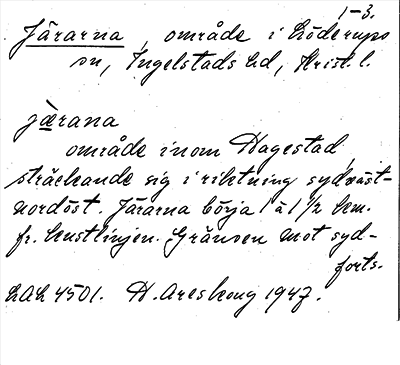 1-3.
Järarna, område i Löderups
sn, Ingelstads hd, Krist. l.
jærana
område inom Hagestad,
sträckande sig i riktning sydväst-
nordöst. Järarna börja 1 à 1 1/2 km.
fr. kustlinjen. Gränsen mot syd-
forts.
LAL 4501. H. Areskoug 1947.